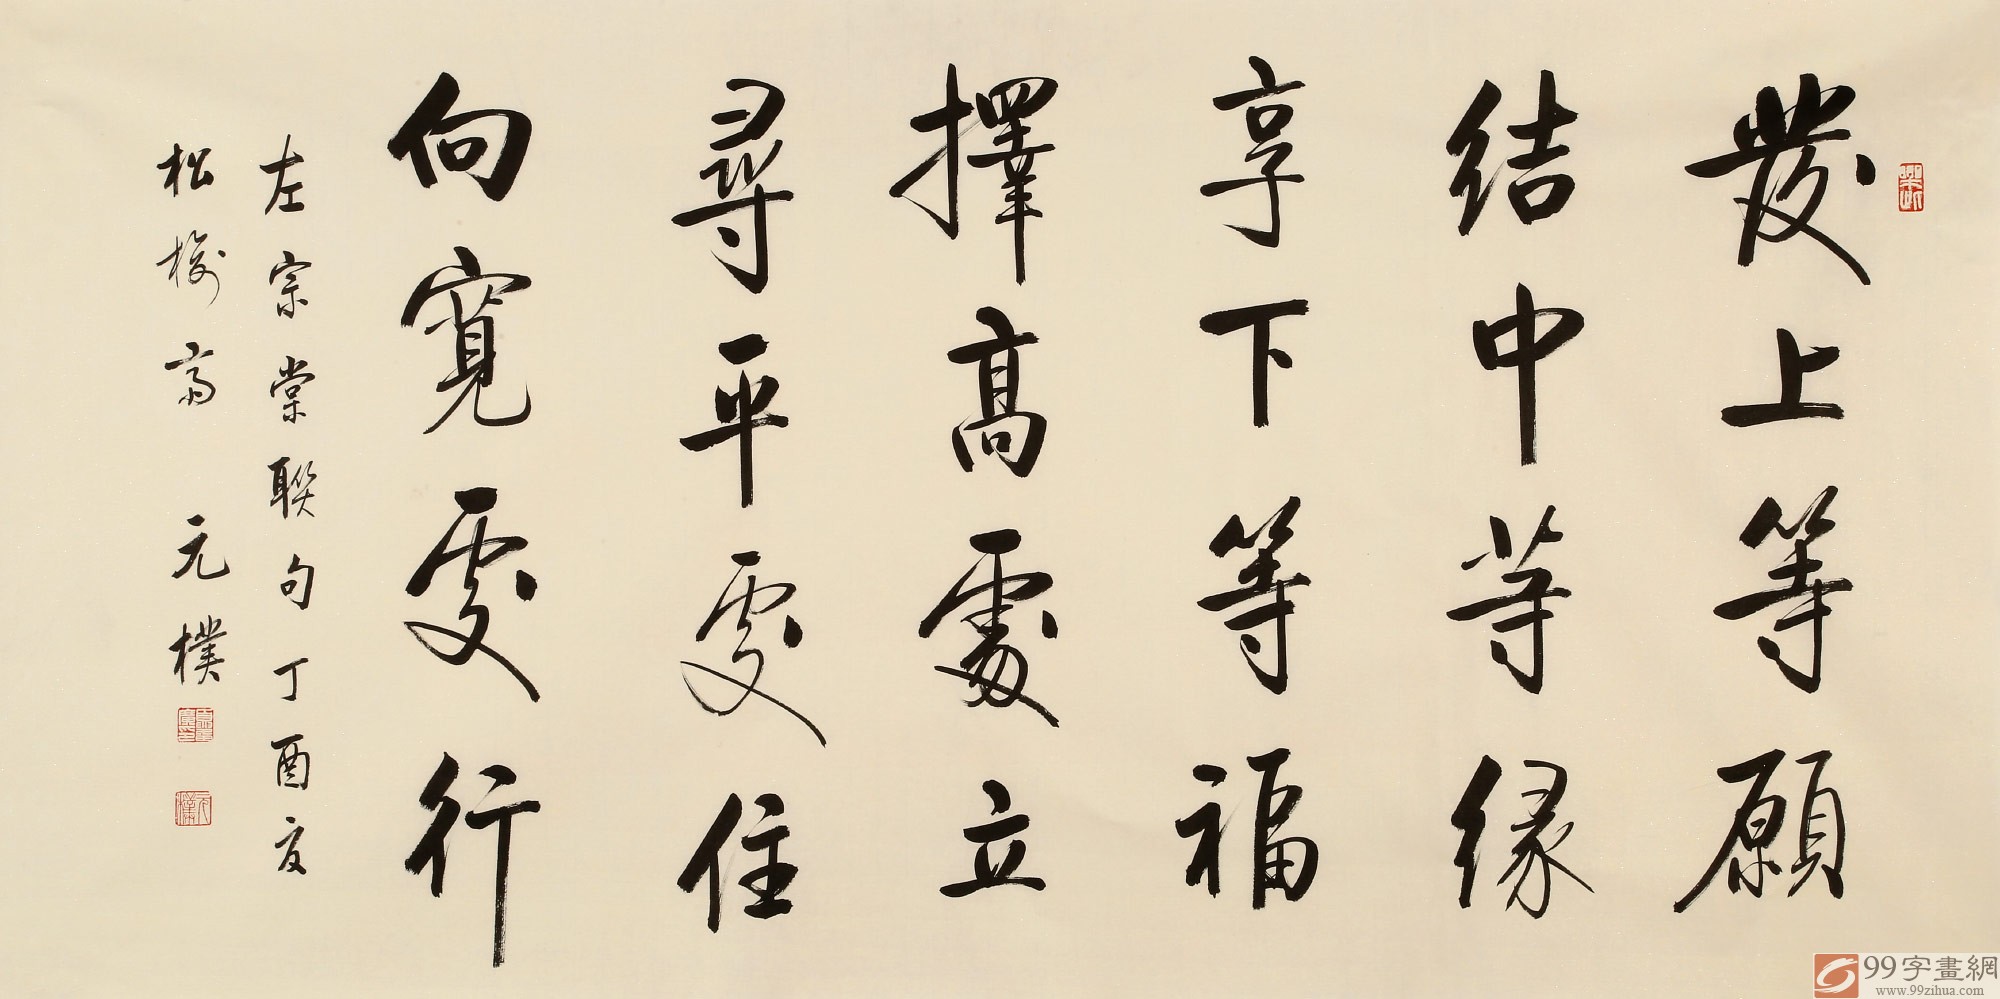 發上等願
結中等緣
享下等福
擇高處立
尋平處住
向寬處行
左宗棠聯句丁酉夏
松梅齋 元樸
元樸
99字畫網
www.99zihua.com